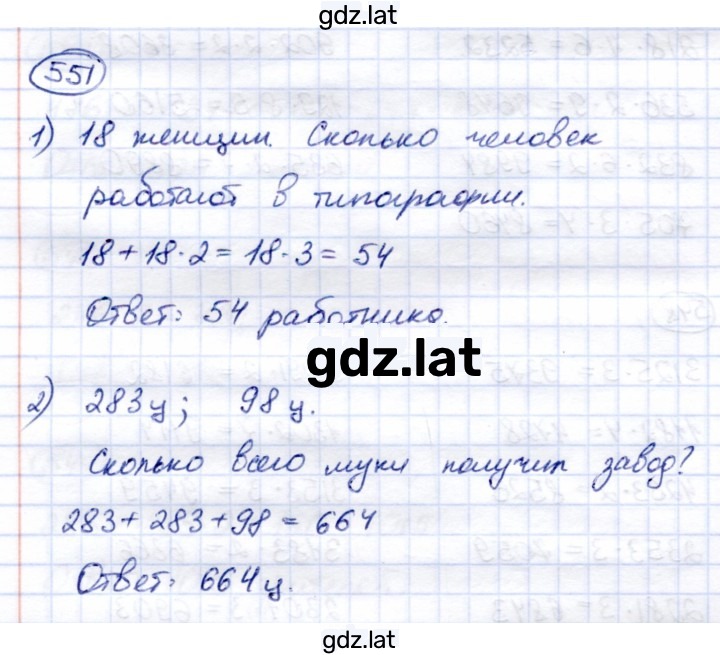 gdz.lat
551
1) 18 женщин. Сколько человек
работают в типографии.
18 + 18 · 2 = 18 · 3 = 54
Ответ: 54 работника.
gdz.lat
2) 283 ц; 98 ц.
Сколько всего муки получит завод?
283 + 283 + 98 = 664
Ответ: 664 ц.
gdz.lat